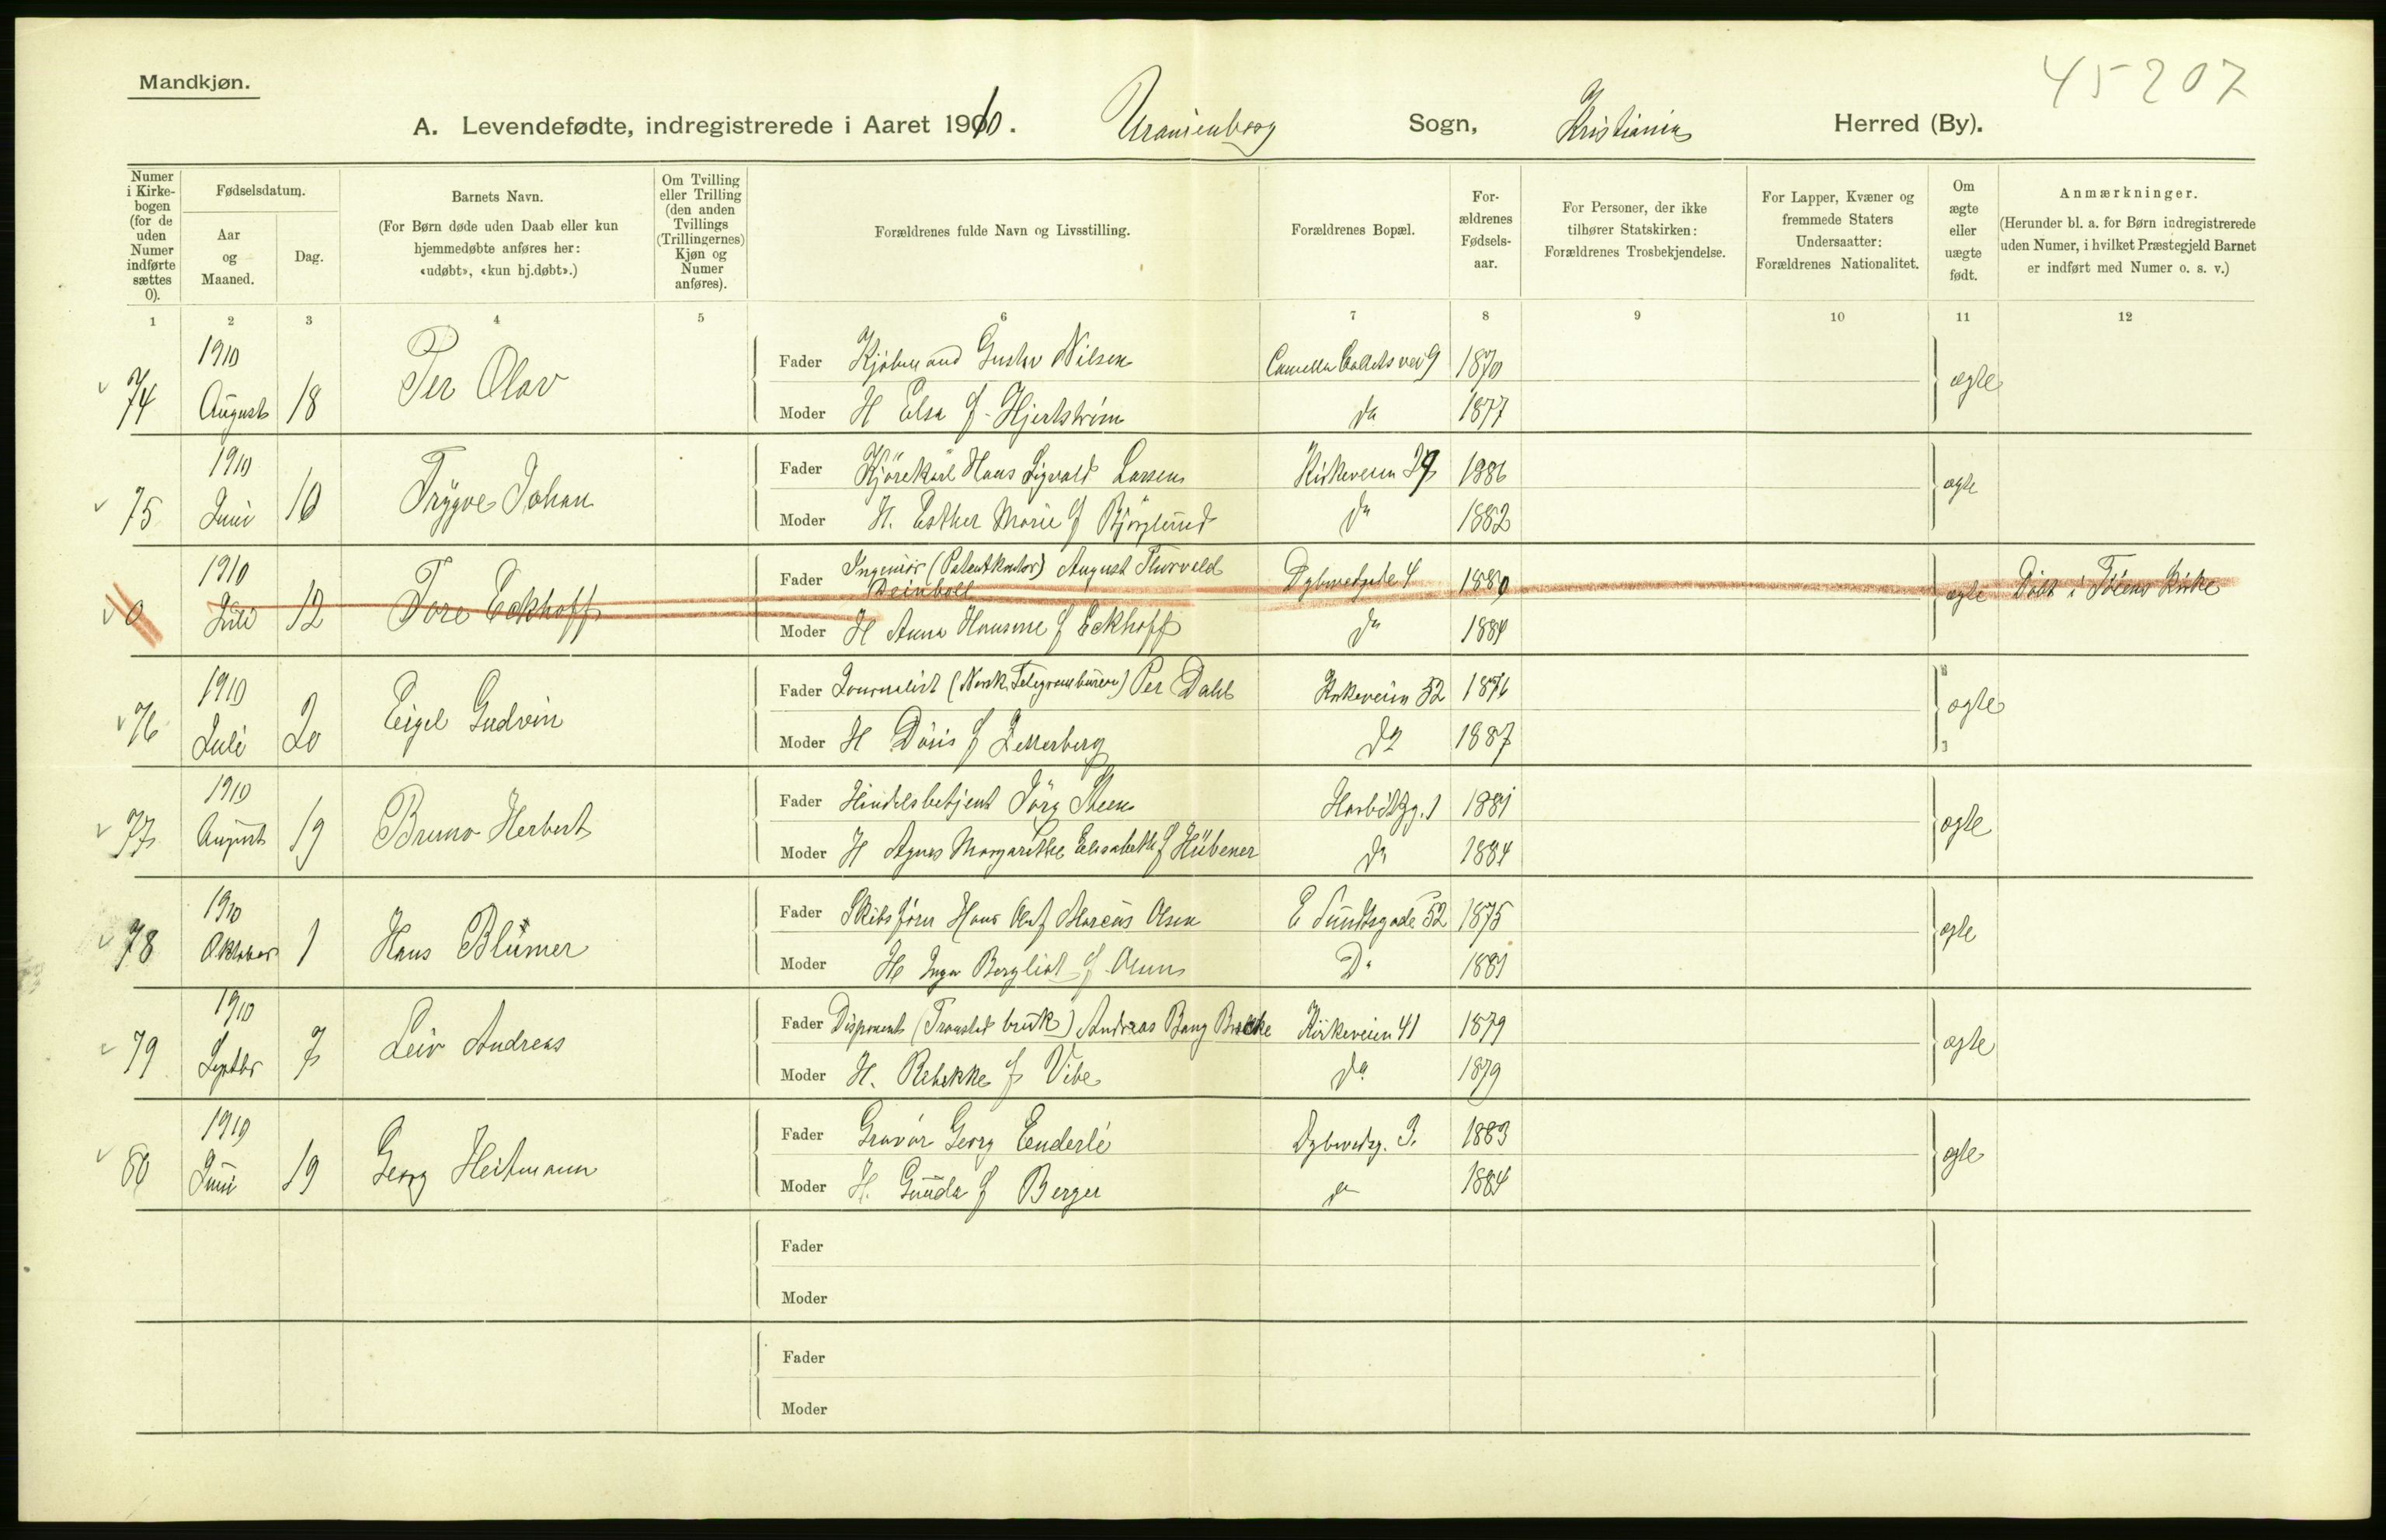 Mandkjøn.
45207
A. Levendefødte, indregistrerede i Aaret 1910. Uranienborg Sogn, Kristiania Herred (By).
Numer i Kirkebogen (for de uden Numer indførte sættes 0).
Fødselsdatum.
Aar og Maaned.
Dag.
Barnets Navn.
(For Børn døde uden Daab eller kun hjemmedøbte anføres her: «udøbt», «kun hj.døbt».)
Om Tvilling eller Trilling (den anden Tvillings (Trillingernes) Kjøn og Numer anføres).
Forældrenes fulde Navn og Livsstilling.
Forældrenes Bopæl.
Forældrenes Fødselsaar.
For Personer, der ikke tilhører Statskirken: Forældrenes Trosbekjendelse.
For Lapper, Kvæner og fremmede Staters Undersaatter: Forældrenes Nationalitet.
Om ægte eller uægte født.
Anmærkninger.
(Herunder bl. a. for Børn indregistrerede uden Numer, i hvilket Præstegjeld Barnet er indført med Numer o. s. v.)
1 2 3 4 5 6 7 8 9 10 11 12
74 1910 August 18 Per Olav
Fader Kjøbmand Gustav Nilsen Camilla Colletts vei 9 1870 ægte
Moder H Elsa f. Hjertström do 1877
75 1910 Juni 10 Trygve Johan
Fader Kjörekarl Hans Sigvald Larsen Kirkeveien 29 1886 ægte
Moder H. Esther Marie f Björglund do 1882
0 1910 Juli 12 Tore Eckhoff
Fader Ingeniör (Patentkontor) August Thorvald Deinboll Dybwadsgade 4 1880 ægte Döbt i Töiens Kirke
Moder H Anna f Eckhoff do 1884
76 1910 Juli 20 Eigel Gudvin
Fader Journalist (Norsk Telegrambureau) Per Dahl Kirkeveien 52 1876 ægte
Moder H Döris f Zetterberg do 1887
77 1910 August 19 Bruno Herbert
Fader Handelsbetjent Jörg Steen Harbitzg. 1 1881 ægte
Moder H Agnes Margarethe Elisabeth f Hübener do 1884
78 1910 Oktober 1 Hans Blümer
Fader Skibsförer Hans Olaf Marcus Olsen E Sundtsgade 52 1875 ægte
Moder H Inga Bergliot f Olsen Do 1881
79 1910 Septbr 7 Leiv Andreas
Fader Disponent (Tranelad bruk) Andreas Bang Brecke Kirkeveien 41 1879 ægte
Moder H. Rebekke f Vibe do 1879
80 1910 Juni 19 Georg Heitmann
Fader Gravör Georg Enderlé Dybwadsg. 3. 1883 ægte
Moder H. Gunda f Berger do 1884
Fader
Moder
Fader
Moder